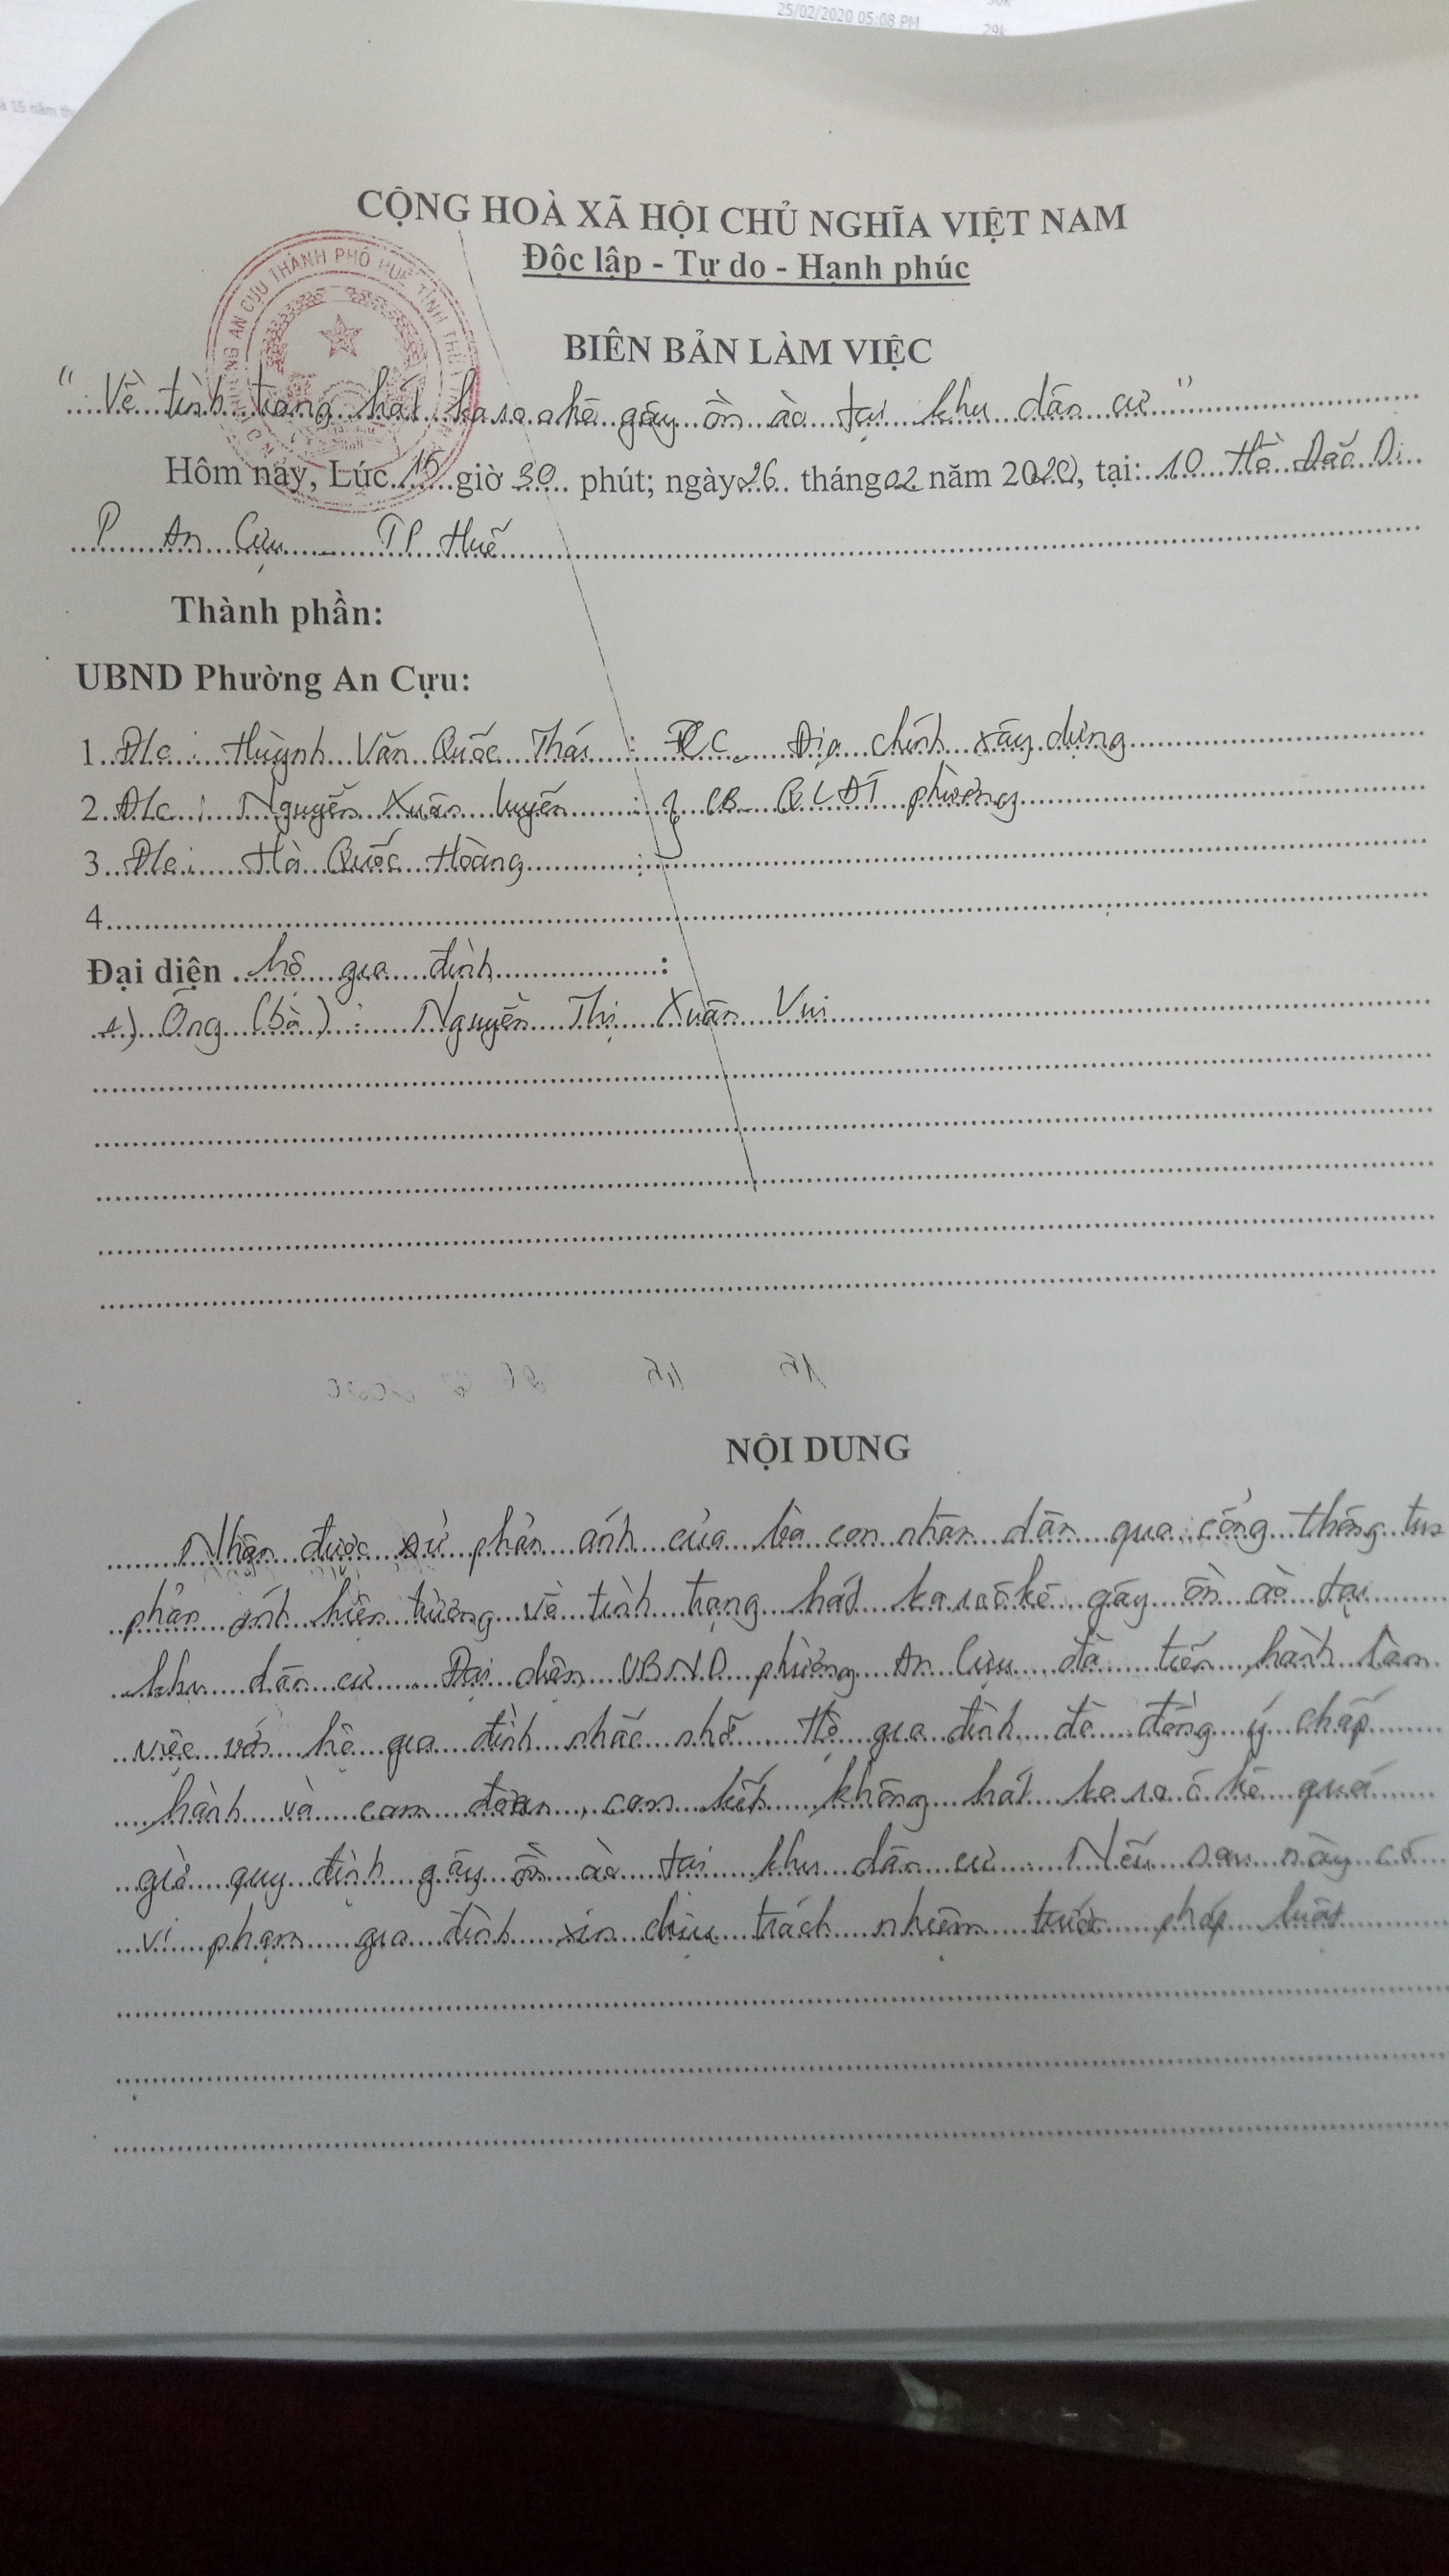 25/02/2020 05:08 PM
29k
CỘNG HOÀ XÃ HỘI CHỦ NGHĨA VIỆT NAM
Độc lập - Tự do - Hạnh phúc
AN CỰU THÀNH PHỐ HUẾ TỈNH
BIÊN BẢN LÀM VIỆC
"Về tình trạng hát karaokê gây ồn ào tại khu dân cư"
Hôm nay, Lúc 15 giờ 30 phút; ngày 26 tháng 02 năm 2020, tại: 10 Hồ Đắc Di
P An Cựu - TP Huế
Thành phần:
UBND Phường An Cựu:
1. Đ/c: Huỳnh Văn Quốc Thái : Địa chính xây dựng
2. Đ/c: Nguyễn Xuân Luyến : CB QLĐT phường
3. Đ/c: Hà Quốc Hoàng :
4
Đại diện hộ gia đình :
1) Ông (bà): Nguyễn Thị Xuân Vui
NỘI DUNG
Nhận được sự phản ánh của bà con nhân dân qua cổng thông tin
phản ánh hiện trường về tình trạng hát karaôkê gây ồn ào tại
khu dân cư Đại diện UBND phường An Cựu đã tiến hành làm
việc với hộ gia đình nhắc nhở Hộ gia đình đã đồng ý chấp
hành và cam đoan, cam kết không hát karaôkê quá
giờ quy định gây ồn ào tại khu dân cư. Nếu sau này có
vi phạm gia đình xin chịu trách nhiệm trước pháp luật